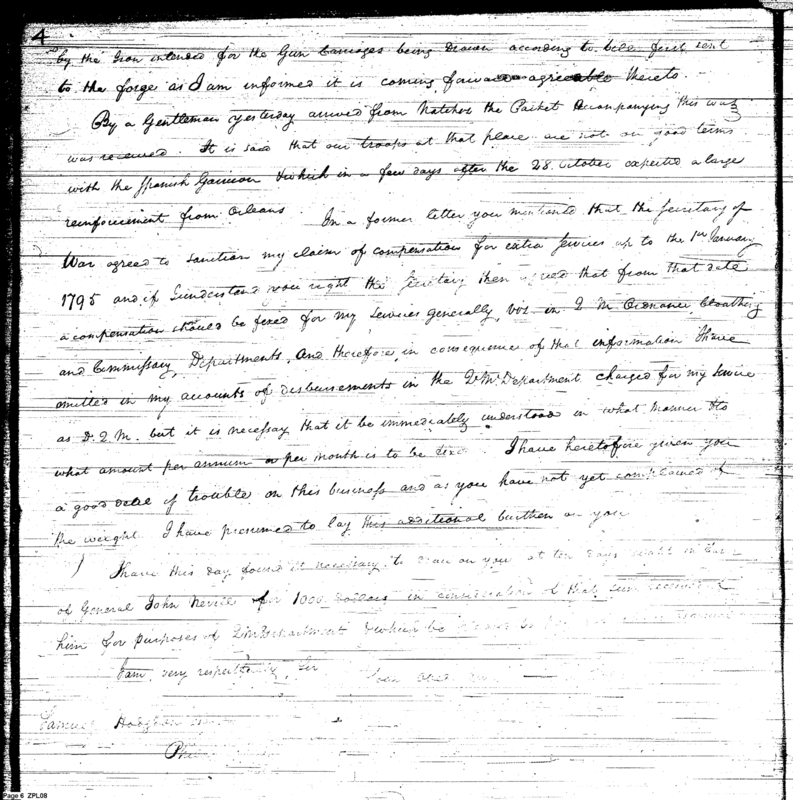 4
by the Iron intended for the Gun Carriages being drawn according to bill first sent
to the forge as I am informed it is coming forward agreeable thereto.
By a Gentleman yesterday arrived from Natchez the Packet accompanying this was
was received. It is said that our troops at that place are not on good terms
with the Spanish Garrison & which in a few days after the 28 October expected a large
reinforcement from Orleans In a former letter you mentioned that the Secretary of
War agreed to sanction my claim of compensation for extra Services up to the 1st January
1795 and if I understand you right the Secretary then agreed that from that date
a compensation should be fixed for my Services generally, viz. in Q M Ordnance Cloathing
and Commissary Departments, and therefore in consequence of that information I have
omitted in my accounts of disbursements in the Q Mr Department charged for my Service
as D. Q M. but it is necessary that it be immediately understood in what manner & to
what amount per annum or per month is to be fixed I have heretofore given you
a good deal of trouble on this business and as you have not yet complained of
the weight. I have presumed to lay this additional burthen on you
I have this day found it necessary to draw on you at ten days sight in
of General John Nevill for 1000 Dollars in consideration of that sum received of
him for purposes of Q M Department & which be
I am, very respectfully, Sir Your
Samuel Hodgdon